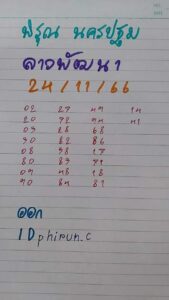 พิรุณ นครปฐม
ลาวพัฒนา
24/11/66
02 27 47 14
20 72 74 41
03 28 68
30 82 86
08 38 17
80 83 71
18
81
ออก
ID phirun_c